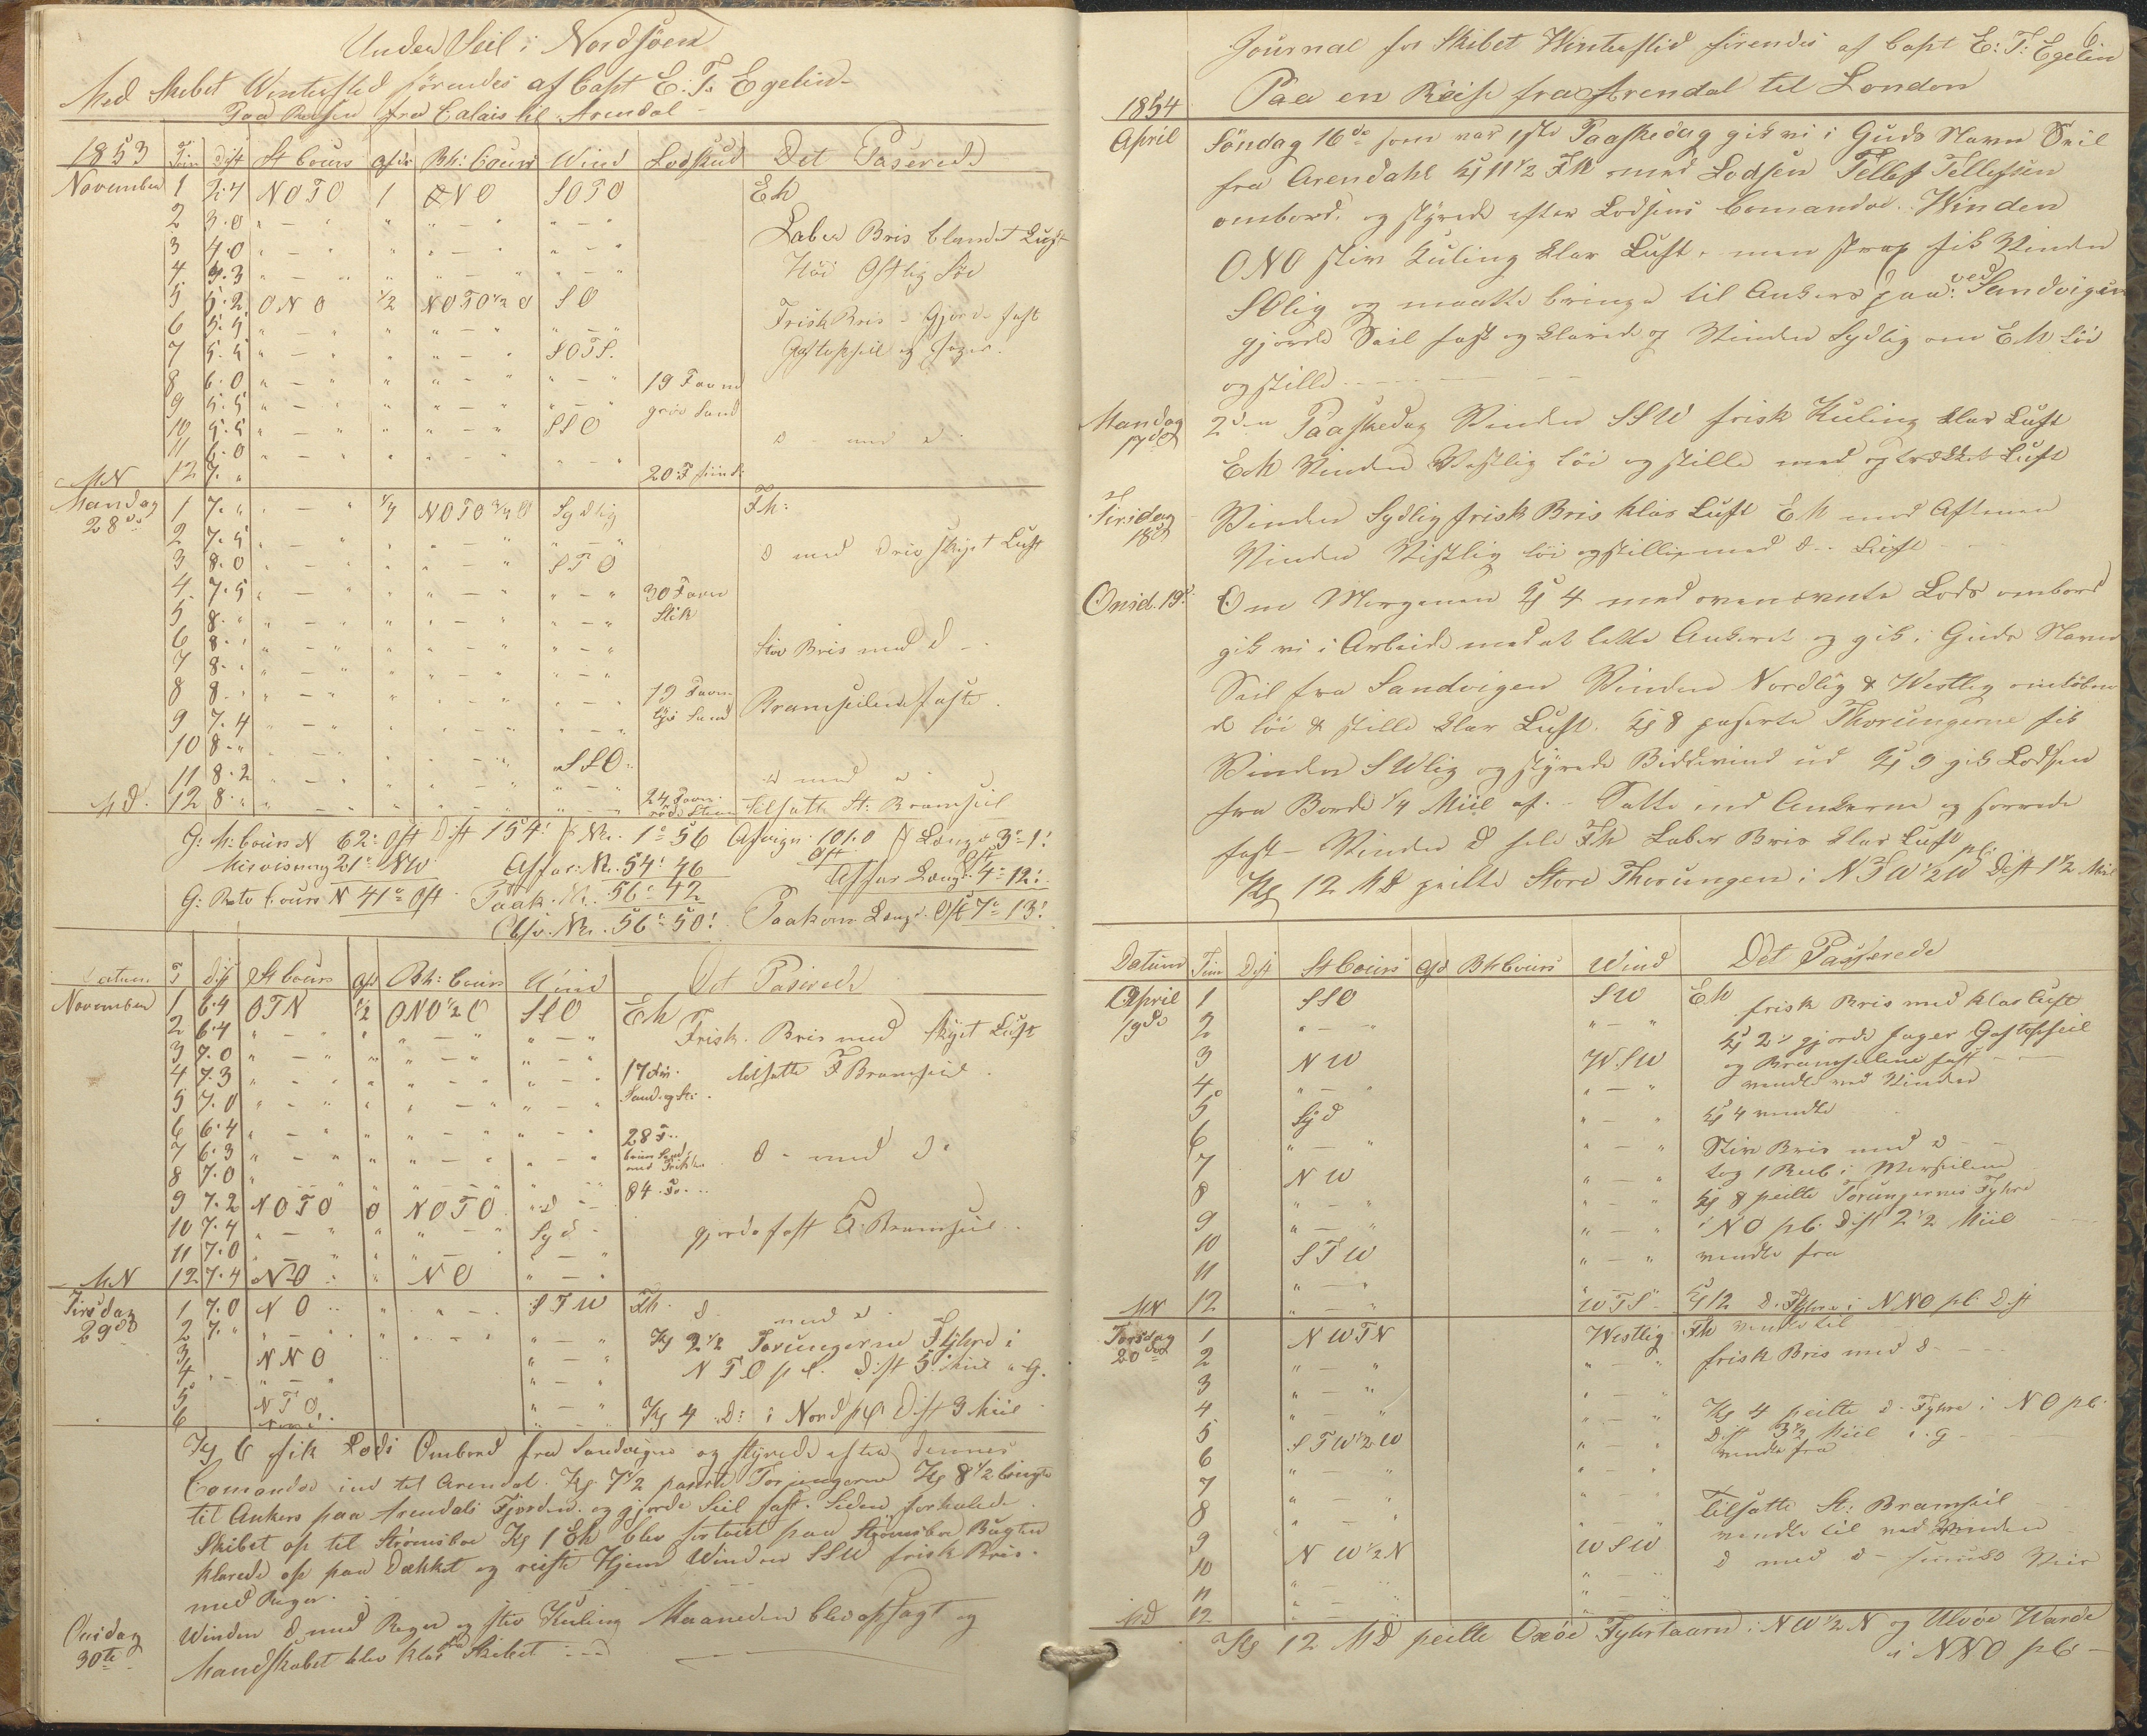 Under Seil i Nordsöen
Med Skibet Vinterflid förendes af Capt E. T. Egelin
Paa Reisen fra Calais til Arendal
1853 Tim dist St Cours afdr Bh: Cours Wind Lodskud Det Paserede
November 1 2.4 NOTO 1 ONO SOTO Eh
2 3.0 " — " " " — " " — " Laber Bris blandet Luft
3 4.0 " — " " " — " " — "
4 4.3 " — " " " — " " — " Höi Ostlig Söe
5 5.2 ONO 1/2 NOTO 1/2 O SO
6 5.5 " — " " " — " " — " Frisk Bris - Gjorde fast
7 5.5 " — " " " — " SOTS. Gaftopseil og Jager.
8 6.0 " — " " " — " " — " 19 Favne
9 5.5 " — " " " — " " — " grov Sand
10 5.5 " — " " " — " SSO
11 6.0 " — " " " — " d - med d -
MN 12 7. " " — " 20 F fiin d:
Mandag 1 7. " " — " 1/4 NOTO 3/4 O Sydlig Fh:
28de 2 7.5 " — " " " — " " — "
3 8.0 " — " " " — " STO d med Driv skyet Luft
4 7.5 " — " " " — " " — " 30 Favn
5 8. " " — " " " — " " — " Slik
6 8. " " — " " " — " " — " Stiv Bris med d -
7 8. " " — " " " — " " — "
8 8. " " — " " " — " " — " 19 Favn Bramseilene faste.
9 7.4 " — " " " — " " — " lys Sand
10 8. " " — " " " — "
11 8.2 " — " " " — " " SSO " d med d
MD. 12 8. " " — " " " — " " — " 24 Favn Tilsatte St: Bramseil
G: M: Cours N 62° Ost Dist 154' f Br. 1° 56 Afvign 101.0 Ost f Længde 3° 1'
Misvisning 21° NW Affar: Br. 54° 46 Affar Længd. Ost 4° 12'
G: Retv Cours N 41° Ost Paak. Br. 56° 42
Obsv. Br. 56° 50' Paakom Længd. Ost 7° 13'
Datum T dist St Cours afd Bh: Cours Wind Det Paserede
November 1 6.4 OTN 1/2 ONO 1/2 O SSO Eh
2 6.4 " — " " " — " " — " Frisk. Bris med skyet Luft
3 7.0 " — " " " — " " — "
4 7.3 " — " " " — " " — " 17 Fav. tilsatte F Bramseil.
5 7.0 " — " " " — " " — "
6 6.4 " — " " " — " " — " 28 F
7 6.3 " — " " " — " " — " d - med d.
8 7.0 " — " " " — "
9 7.2 NOTO 0 NOTO " d - 84. Fv.
10 7.4 " — " " " — " Syd gjorde fast F. Bramseil
11 7.0 " — " " " — " " — "
MN 12 7.4 NO " NO " — "
Tirsdag 1 7.0 NO " " — " STW Fh. d - med d
29de 2 7. " " — " " " — " " — " Kl 2 1/2 Torungerne Fyhre i
3 NNO " — " NTO pl. dist 5 Miil n G.
4 " — " " — "
5 NTO " — "
6 Nord. Kl 4 d: i Nord pl. Dist 3 Miil
Kl 6 fik Lods Ombord fra Sandvigen og styrede efter dennes
Comando ind til Arendal. Kl 7 1/2 paserte Torjungerne Kl 8 1/2 bragte
til Ankers paa Arendals Fjorden og gjorde Seil fast. Siden forhalede
Skibet op til Strömsboe Kl 1 Eh blev fortöiet paa Strömsboe Bugten
klarede op paa Dækket og reiste Hjem Winden SSW frisk Bris.
med Regn.
Onsdag Winden d med Regn og stiv Kuling Maaneden blev opsagt og
30te Mandskabet blev klar fra Skibet
6
Journal for Skibet Vinterflid förendes af Capt E: T: Egelin
Paa en Reise fra Arendal til London
1854
April Söndag 16de som var 1ste Paaskedag gik vi i Guds Navn Seil
fra Arendahl Kl 11 1/2 Fh med Lodsen Tellef Tellefsen
ombord. og styrede efter Lodsens Comando. Winden
ONO stiv Kuling klar Luft. men strax fik Vinden
SOlig og maatte bringe til Ankers paa: ved Sandvigen
gjorde Seil fast og klarede op Vinden Sydlig om Eh löi
og stille
Mandag 17de 2den Paaskedag Vinden SSW frisk Kuling klar Luft
Eh Vinden Vestlig löi og stille med optrækket Luft
Tirsdag 18de Vinden Sydlig frisk Bris klar Luft Eh mod Aftenen
Vinden Vestlig löi og stille med d - Luft
Onsd. 19d. Om Morgenen Kl 4 med ovennævnte Lods ombord
gik vi i Arbeide med at lette Ankeret og gik i Guds Navn
Seil fra Sandvigen Vinden Nordlig & Westlig omlöben
de löi & stille klar Luft. Kl 8 paserte Thorungerne fik
Vinden SWlig og styrede Biddevind ud Kl 9 gik Lodsen
fra Borde 1/4 Miil af. - Satte ind Ankerne og sorrede
fast - Vinden d hele Fh Laber Bris klar Luft
Kl 12 MD peilte Store Thorungen i NTW 1/2 W pl. Dist 1 1/2 Miil
Datum Tim Dist St Cours afd Bh Cours Wind Det Passerede
April 1 SSO SW Eh frisk Bris med klar Luft
19de 2 " — " " — " Kl 2 gjorde Jager Gaftopseil
3 NW W.SW og Bramseilene fast
4 " — " " — " vendte ved Vinden
5 Syd " — " Kl 4 vendte
6 " — " " — " Stiv Bris med d -
7 NW " — " tog 1 Reeb i Merseilene
8 " — " " — " Kl 8 peilte Torungernes Fyhre
9 " — " " — " i NO pl. dist 2 1/2 Miil
10 STW " — " vendte fra
11 " — "
MN 12 " — " WTS Kl 12 d. Fyhre i NNO pl. Dist
Torsdag 1 NWTN Westlig Fh vendte til
20de 2 " — " " — " frisk Bris med d -
3 " — " " — "
4 " — " " — " Kl 4 peilte d. Fyhre i NO pl.
5 STW 1/2 W " — " Dist 3 1/2 Miil i. g
6 " — " " — " vendte fra
7 " — " " — "
8 " — " " — " Tilsatte St: Bramseil
9 NW 1/2 N WSW vendte til ved Vinden
10 " — " " — " d med d - smukt Veir
11 " — " " — "
MD 12 " — " " — "
Kl 12 MD peilte Oxöe Fyhrtaarn i NW 1/2 N og Ulvöe Warde
i NNO pl. -